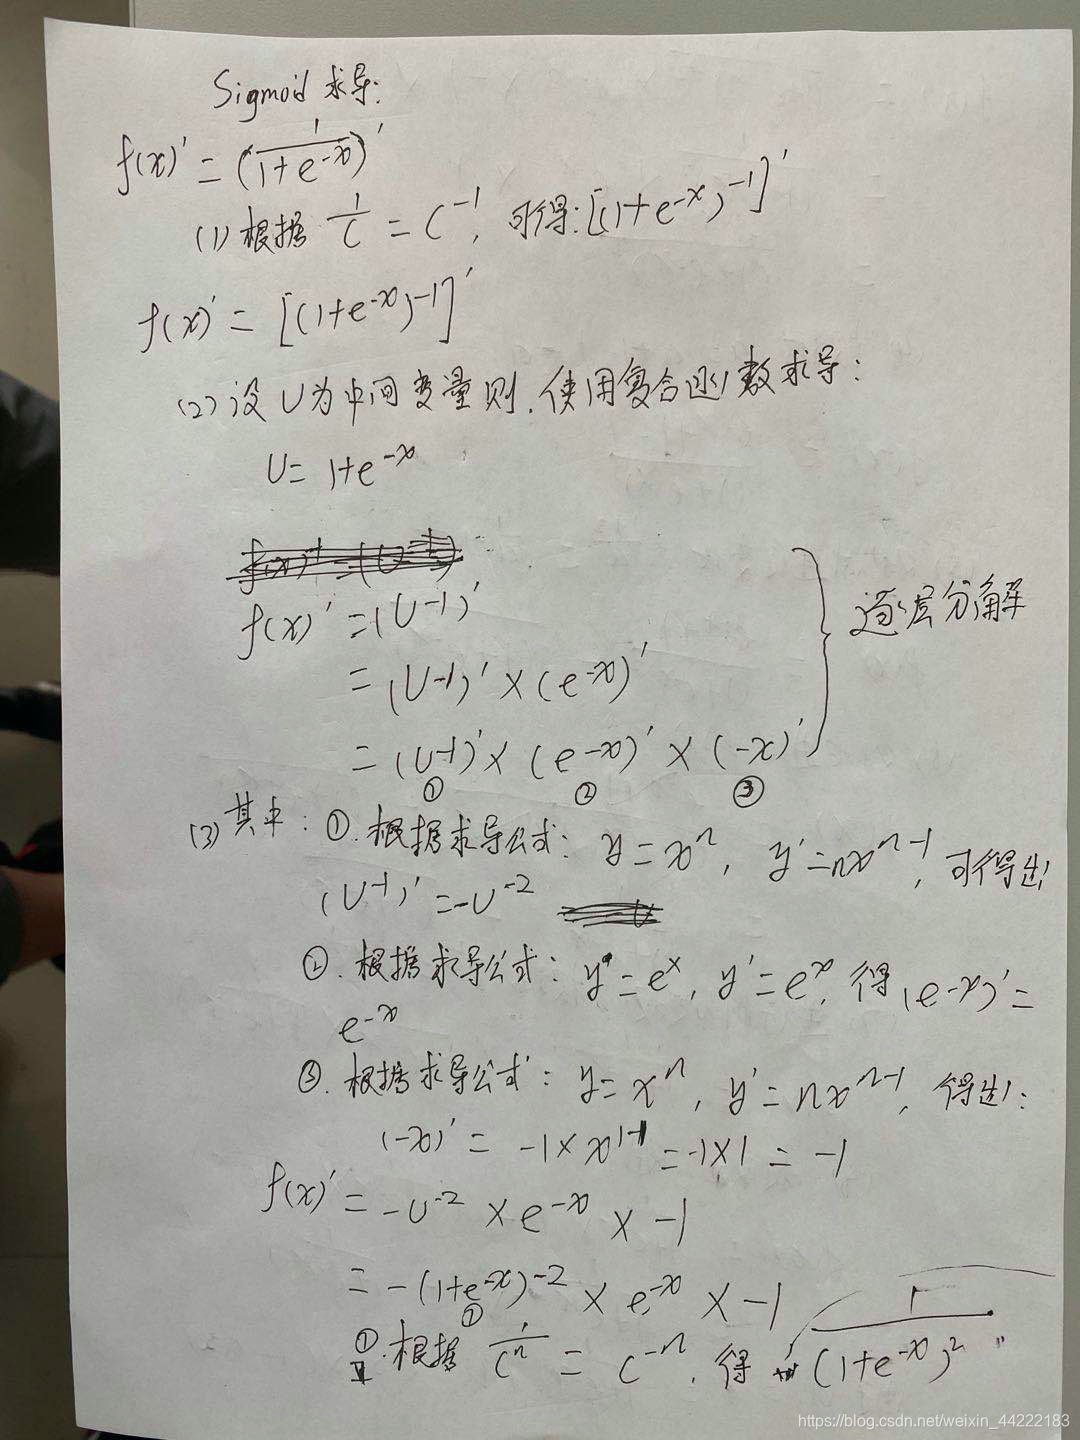 Sigmoid 求导:
f(x)' = (1/(1+e^-x))'
(1) 根据 1/c = c^-1, 可得: [(1+e^-x)^-1]'
f(x)' = [(1+e^-x)^-1]'
(2) 设 U 为中间变量则, 使用复合函数求导:
U = 1+e^-x
f(x)' = (U^-1)'
= (U^-1)' × (e^-x)'
= (U^-1)' × (e^-x)' × (-x)'
① ② ③
逐层分解
(3) 其中: ①. 根据求导公式: y = x^n, y' = nx^n-1, 可得出
(U^-1)' = -U^-2
②. 根据求导公式: y = e^x, y' = e^x, 得 (e^-x)' =
e^-x
③. 根据求导公式: y = x^n, y' = nx^n-1, 得出:
(-x)' = -1 × x^1-1 = -1×1 = -1
f(x)' = -U^-2 × e^-x × -1
= -(1+e^-x)^-2 × e^-x × -1
①
①. 根据 1/c^n = c^-n, 得 1/(1+e^-x)^2
https://blog.csdn.net/weixin_44222183